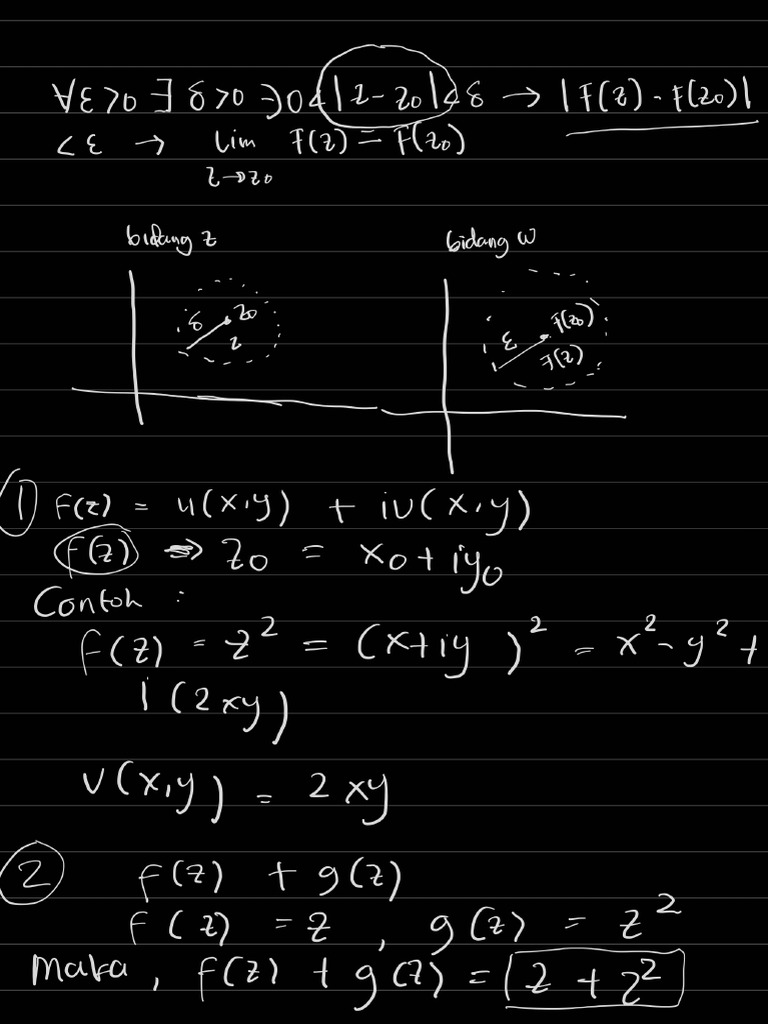 ∀ε>0 ∃ δ>0 ∋0<|z-z₀|<δ → |F(z)-F(z₀)|
<ε → lim F(z)=F(z₀)
z→z₀
bidang z
bidang w
δ z₀
z
ε F(z₀)
F(z)
① F(z) = u(x,y) + iv(x,y)
f(z) => z₀ = x₀+iy₀
Contoh :
f(z) = z² = (x+iy)² = x²-y²+
i(2xy)
v(x,y) = 2xy
② f(z) + g(z)
f(z) = z , g(z) = z²
maka, f(z) + g(z) = z + z²